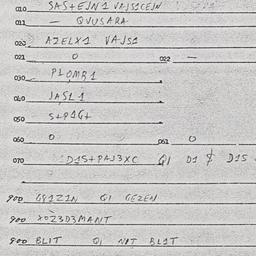 010 SAS+EJN1 VAJS1CEJN
011 — QVUSARA
020 AZELX1 VAJS1
021 0 022 —
030 P+OMR1
040 JASL1
050 S+P1G+
060 0 061 0
070 D1S+PAJ3XC Q1 D1 $ D1S
900 G91Z1N Q1 GEZEN
900 X0Z3D3MANT
900 BL1T Q1 N1T BL1T